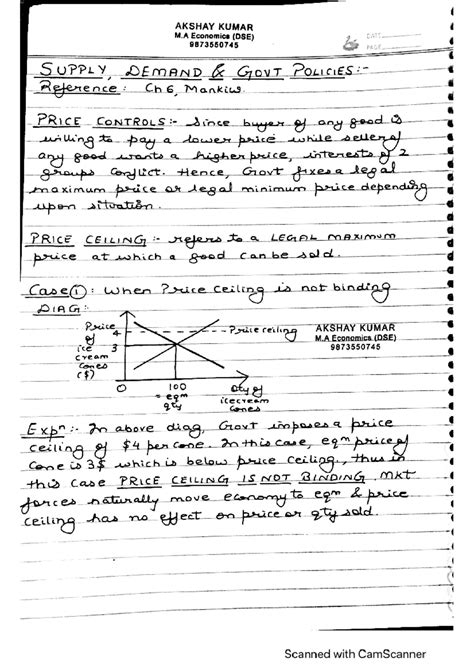 AKSHAY KUMAR
M.A Economics (DSE)
9873550745
DATE
PAGE
SUPPLY, DEMAND & GOVT POLICIES:-
Reference: Ch 6, Mankiw.
PRICE CONTROLS:- Since buyer of any good is
willing to pay a lower price while seller of
any good wants a higher price, interests of 2
groups conflict. Hence, Govt fixes a legal
maximum price or legal minimum price depending
upon situation.
PRICE CEILING:- refers to a LEGAL MAXIMUM
price at which a good can be sold.
Case ①: When Price ceiling is not binding
DIAG:-
Price of ice cream cones ($)
4
Price ceiling
3
0
100 = eqm qty
Qty of icecream cones
AKSHAY KUMAR
M.A Economics (DSE)
9873550745
Expⁿ:- In above diag, Govt imposes a price
ceiling of $4 per cone. In this case, eqm price of
cone is 3$ which is below price ceiling, thus in
this case PRICE CEILING IS NOT BINDING. Mkt
forces naturally move economy to eqm & price
ceiling has no effect on price or qty sold.
Scanned with CamScanner